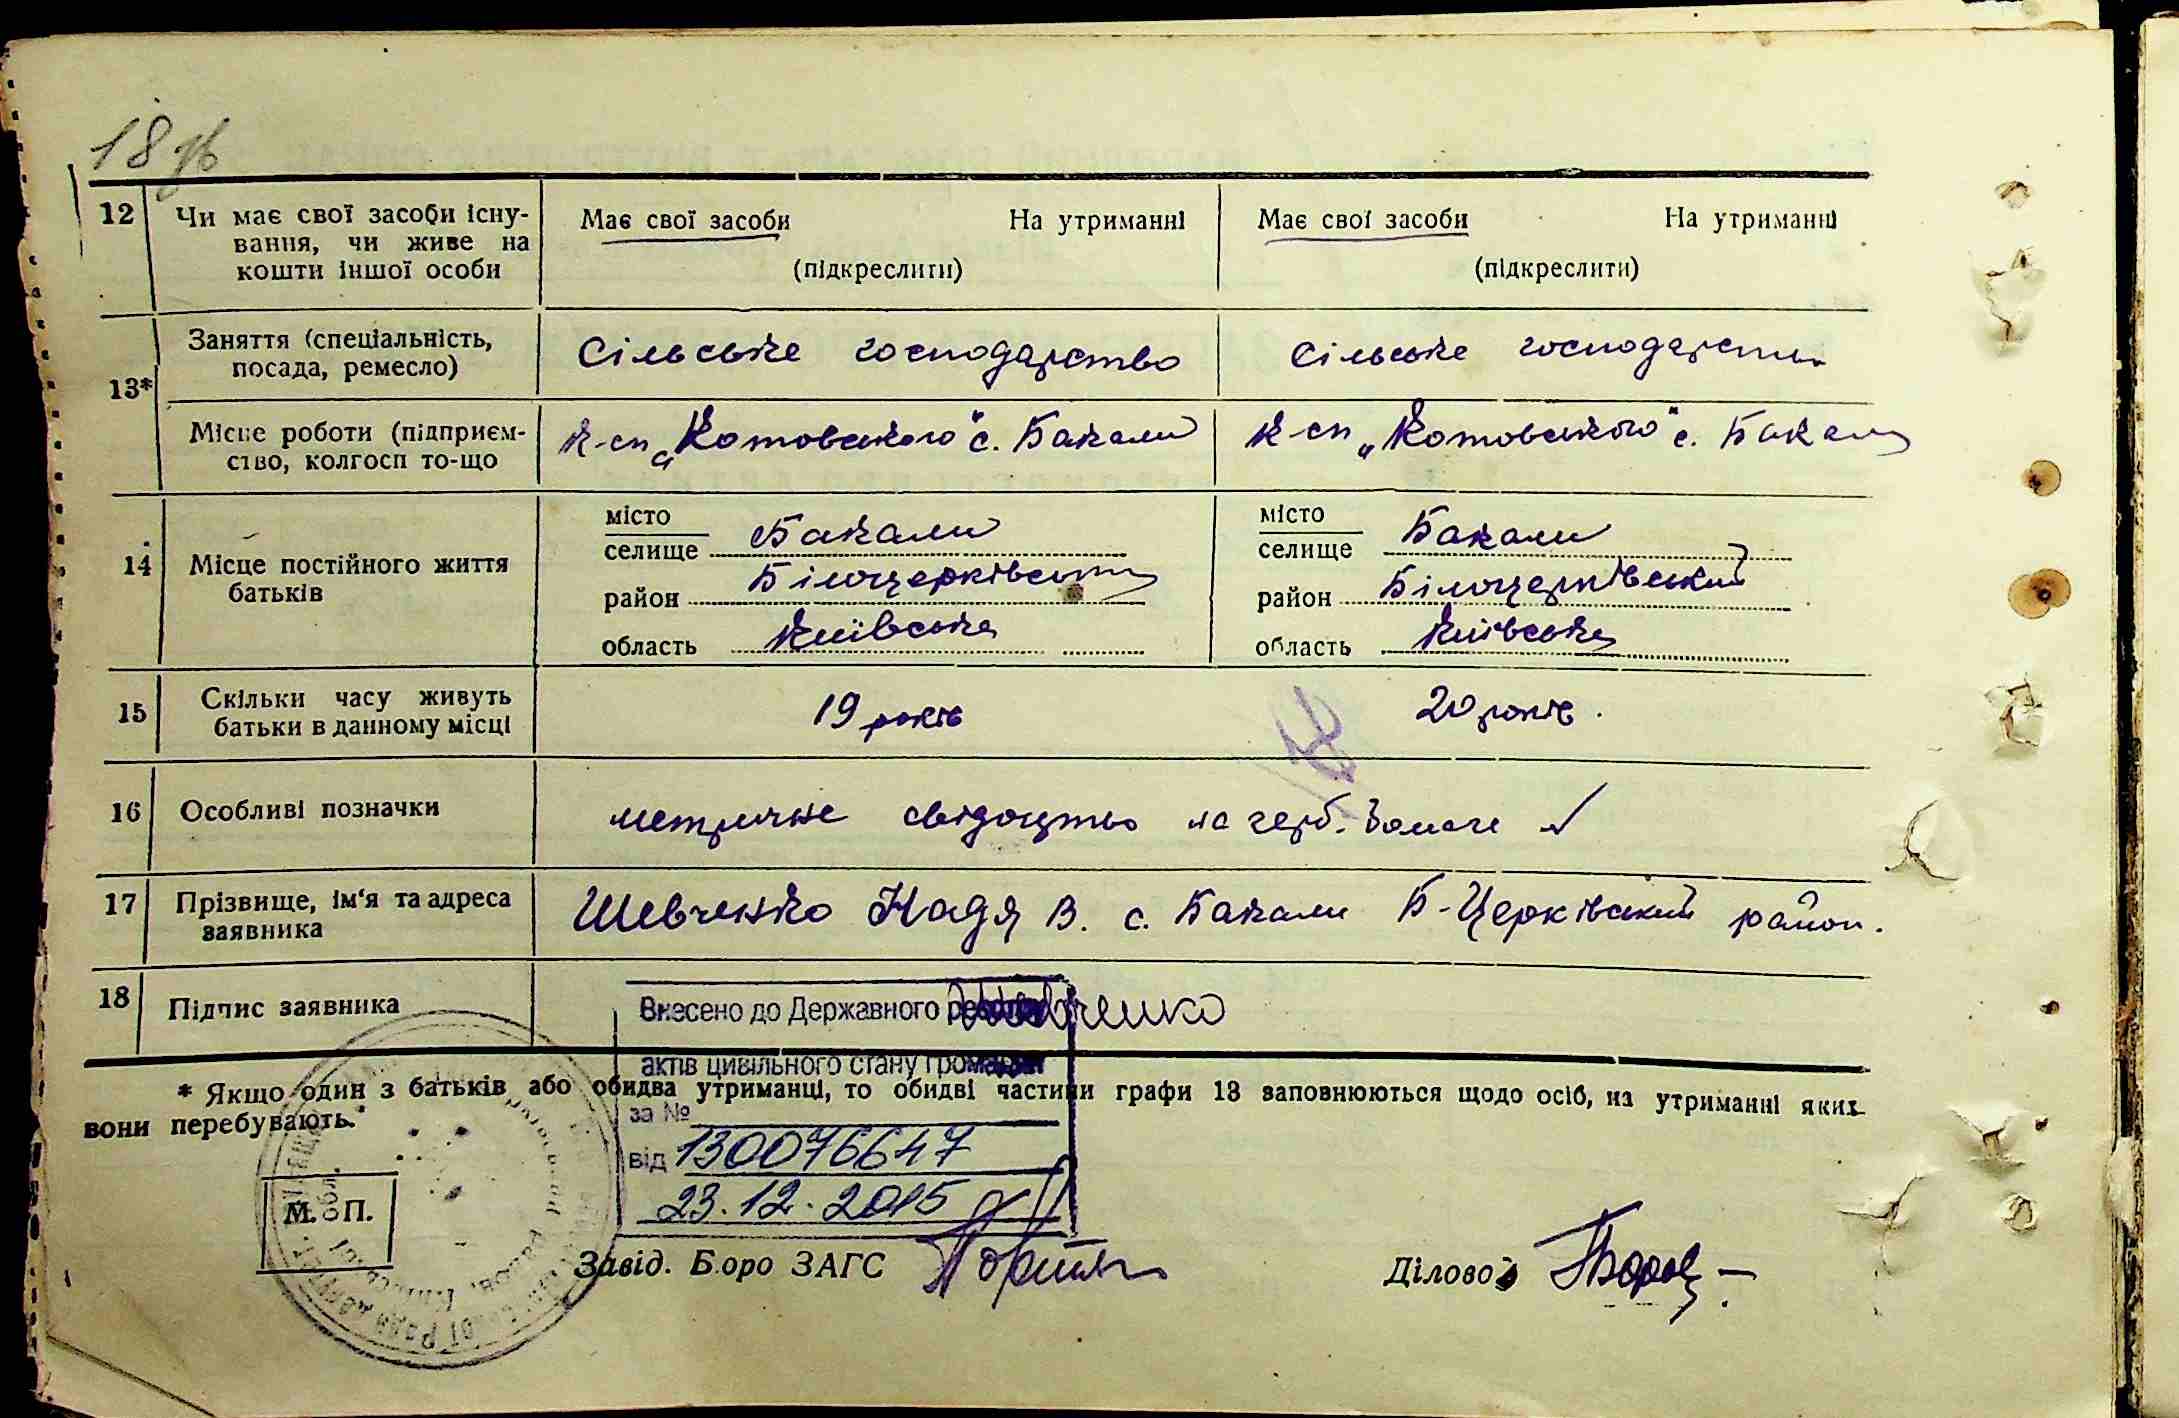 18 зв
12 Чи має свої засоби існу- Має свої засоби На утриманні Має свої засоби На утриманні
вання, чи живе на
кошти іншої особи (підкреслити) (підкреслити)
13* Заняття (спеціальність, Сільське господарство Сільське господарство
посада, ремесло)
Місце роботи (підприєм- К-сп „Котовського" с. Бакали К-сп „Котовського" с. Бакали
ство, колгосп то-що
14 Місце постійного життя батьків
місто Бакали місто Бакали
селище селище
район Білоцерківський район Білоцерківський
область Київська область Київська
15 Скільки часу живуть 19 років 20 років.
батьки в данному місці
16 Особливі позначки метричне свідоцтво на герб. бомаге
17 Прізвище, ім'я та адреса Шевченко Надя В. с. Бакали Б-Церківський район.
заявника
18 Підпис заявника Шевченко
Внесено до Державного реєстру
актів цивільного стану громадян
* Якщо один з батьків або обидва утриманці, то обидві частини графи 13 заповнюються щодо осіб, на утриманні яких
вони перебувають.
за №
від 1300 76647
23.12.2015
М. П.
Завід. Бюро ЗАГС
Діловод